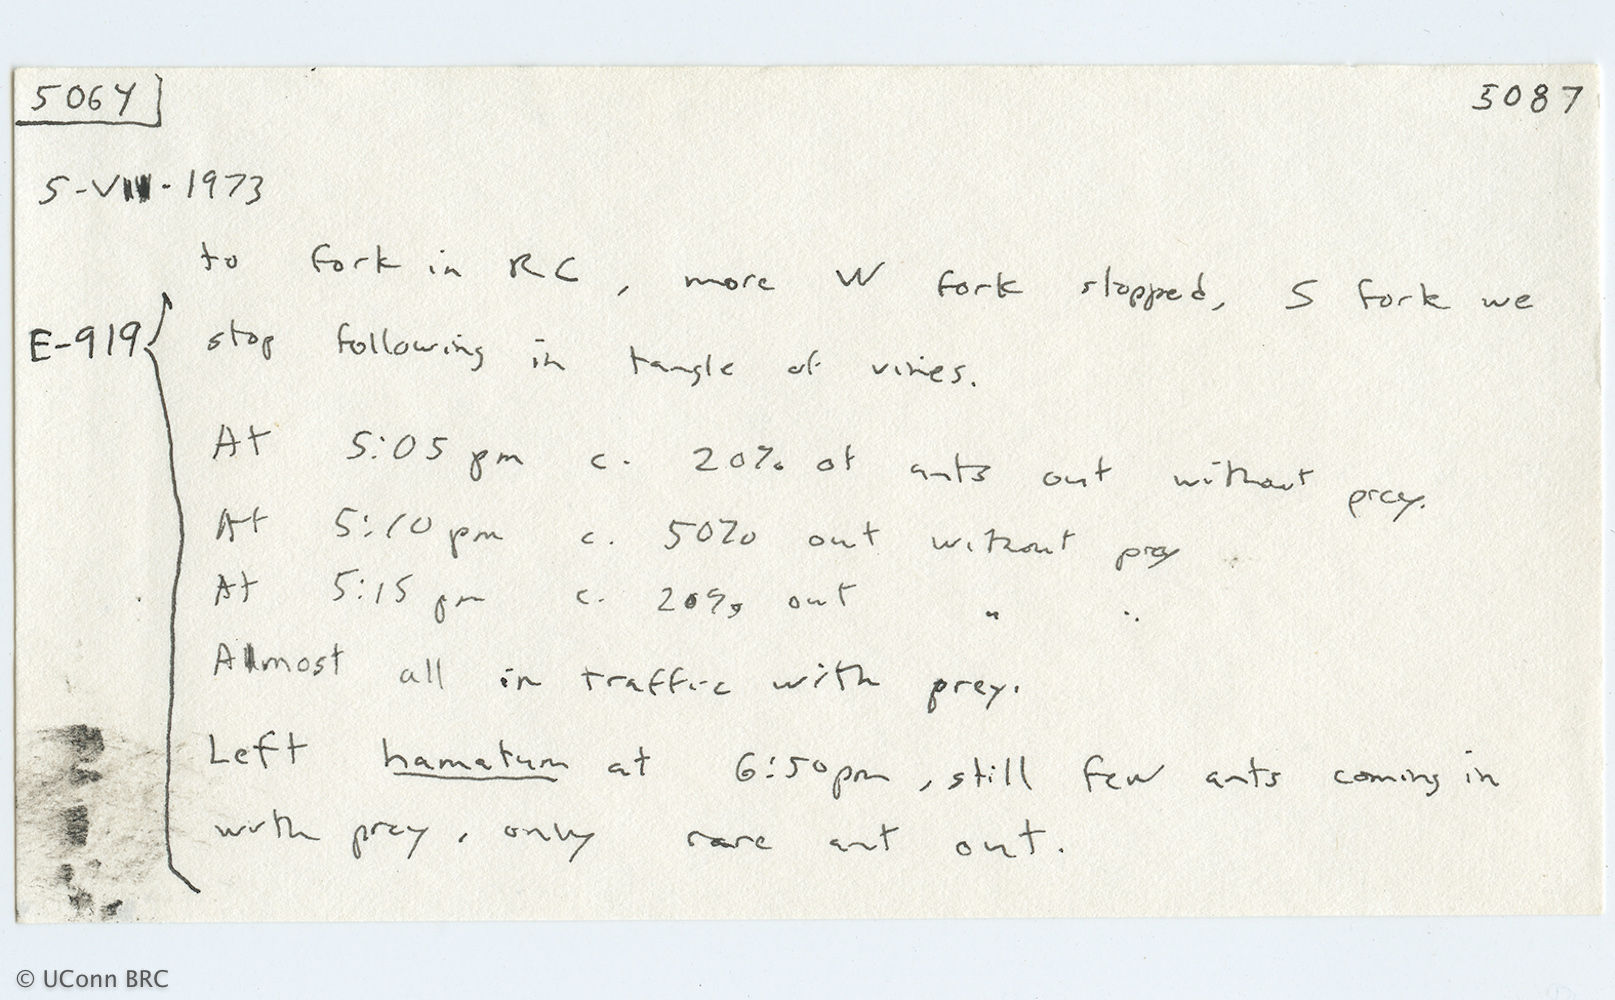 5064 5087
5-VIII-1973
to fork in RC, more W fork stopped, S fork we
E-919 stop following in tangle of vines.
At 5:05 pm c. 20% of ants out without prey.
At 5:10 pm c. 50% out without prey
At 5:15 pm c. 20% out " "
Almost all in traffic with prey.
Left hamatum at 6:50pm, still few ants coming in
with prey, only rare ant out.
© UConn BRC